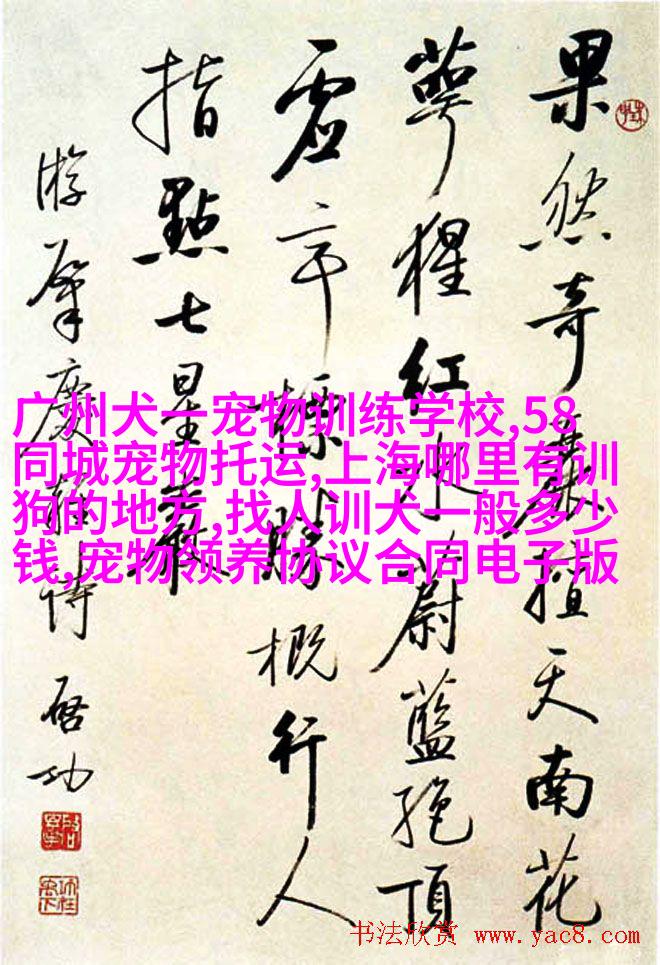 果然奇麗擅天南花
萼猩紅水蔚藍絕頂
虛亭標勝概行人
指點七星巖
游肇慶舊詩 啓功
广州犬一宠物训练学校,58
同城宠物托运,上海哪里有训
狗的地方,找人训犬一般多少
钱,宠物领养协议合同电子版
书法欣赏 www.yac8.com